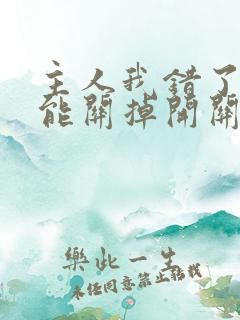 主人我錯了
能關掉開關
樂此一生
未经同意禁止转载